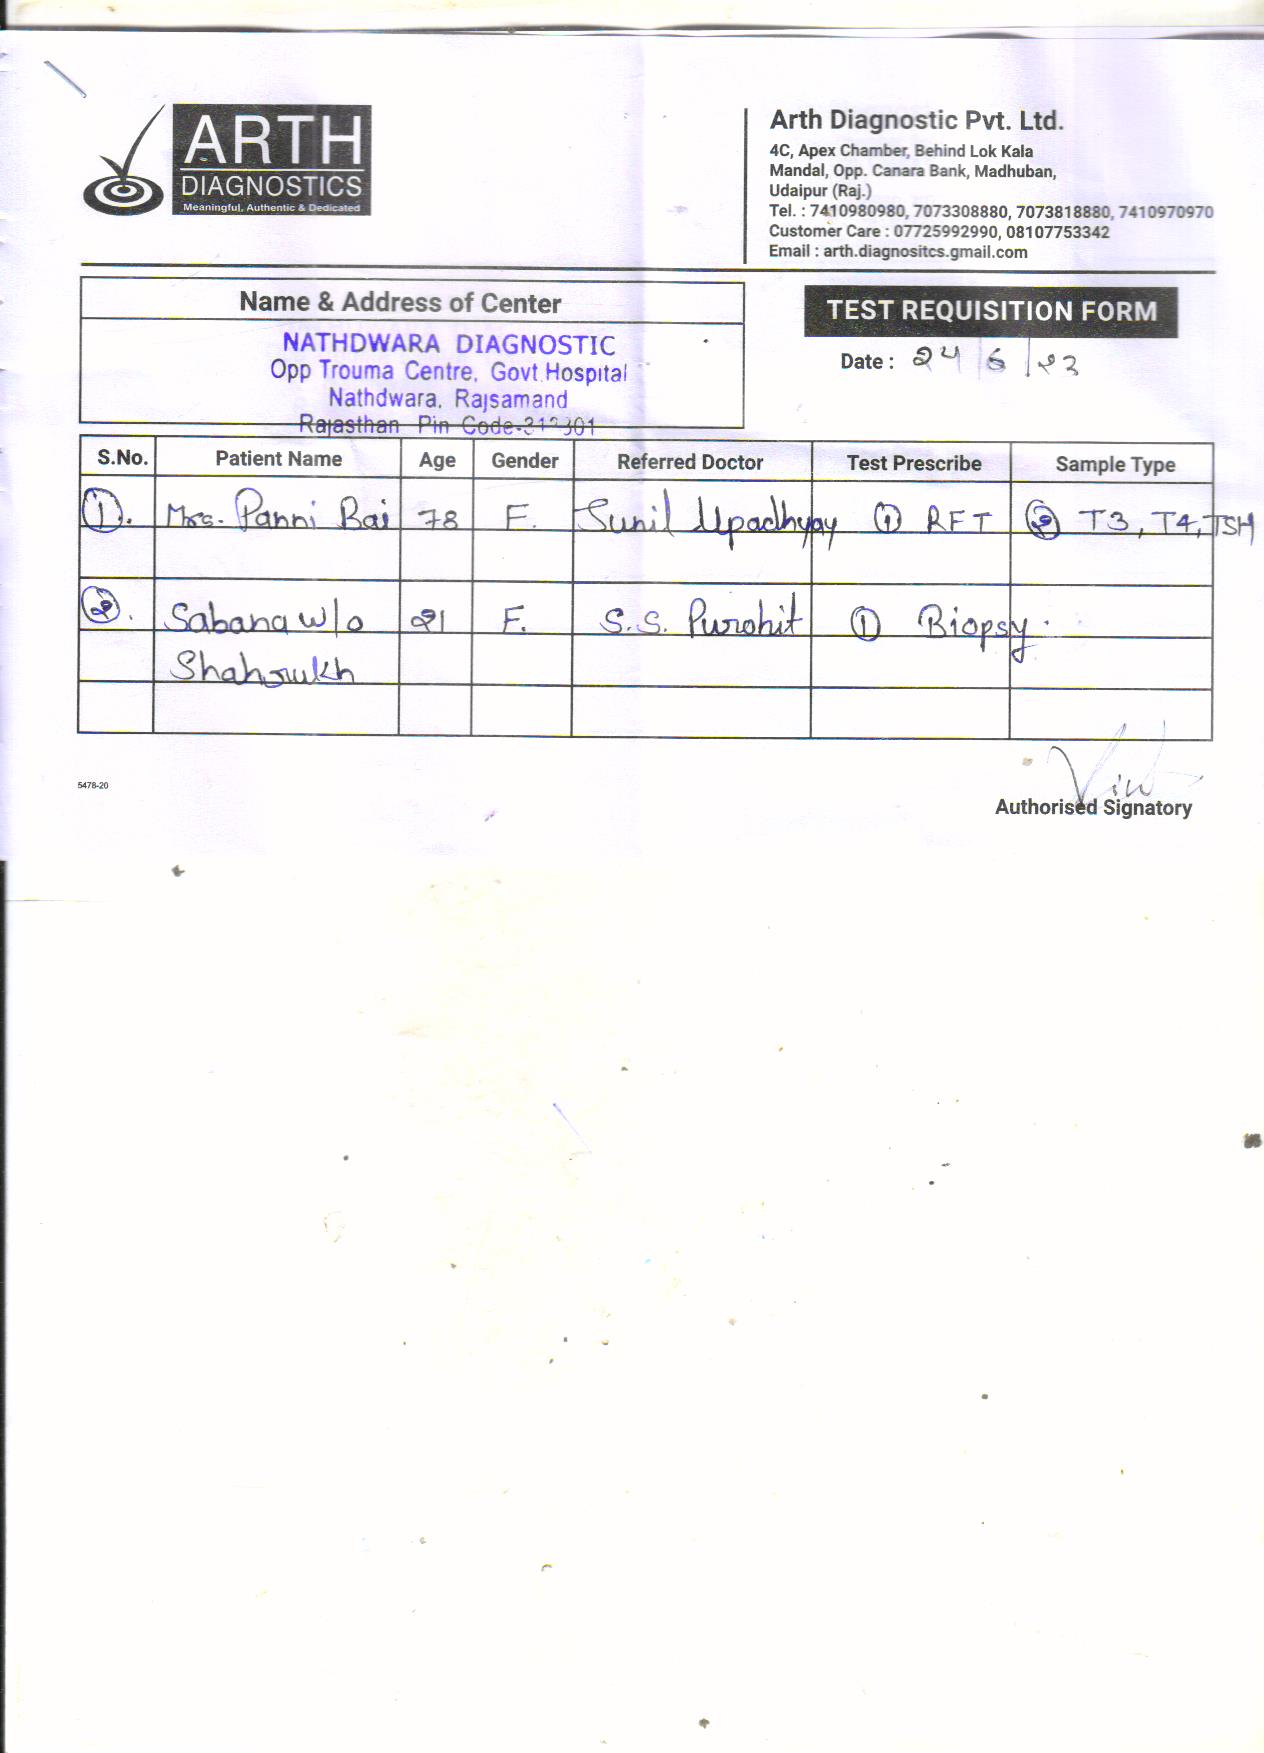 ARTH
DIAGNOSTICS
Meaningful, Authentic & Dedicated
Arth Diagnostic Pvt. Ltd.
4C, Apex Chamber, Behind Lok Kala
Mandal, Opp. Canara Bank, Madhuban,
Udaipur (Raj.)
Tel. : 7410980980, 7073308880, 7073818880, 7410970970
Customer Care : 07725992990, 08107753342
Email : arth.diagnositcs.gmail.com
Name & Address of Center
NATHDWARA DIAGNOSTIC
Opp Trouma Centre, Govt.Hospital
Nathdwara, Rajsamand
Rajasthan Pin Code-313301
TEST REQUISITION FORM
Date : २४/6/२३
S.No. Patient Name Age Gender Referred Doctor Test Prescribe Sample Type
①. Mrs. Panni Bai 78 F. Sunil Upadhyay ① RFT ② T3, T4, TSH
②. Sabana w/o २1 F. S.S. Purohit ① Biopsy.
Shahrukh
5478-20
Authorised Signatory